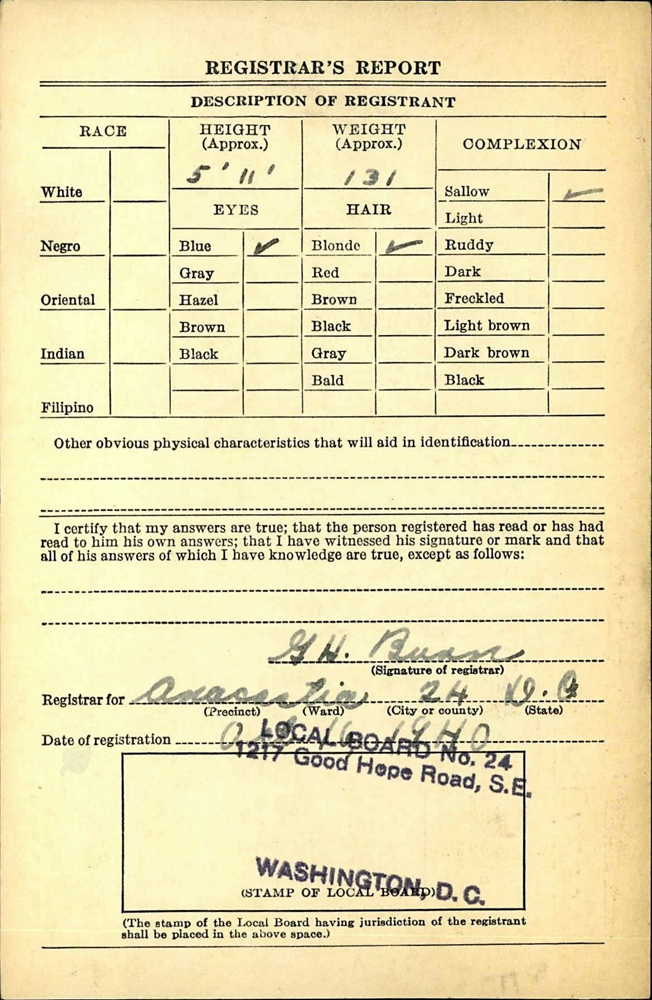 REGISTRAR'S REPORT
DESCRIPTION OF REGISTRANT
RACE
HEIGHT
(Approx.)
WEIGHT
(Approx.)
COMPLEXION
5' 11'
131
White
Sallow ✓
EYES
HAIR
Light
Negro
Blue ✓
Blonde ✓
Ruddy
Gray
Red
Dark
Oriental
Hazel
Brown
Freckled
Brown
Black
Light brown
Indian
Black
Gray
Dark brown
Bald
Black
Filipino
Other obvious physical characteristics that will aid in identification
I certify that my answers are true; that the person registered has read or has had
read to him his own answers; that I have witnessed his signature or mark and that
all of his answers of which I have knowledge are true, except as follows:
G H.
(Signature of registrar)
Registrar for Anacostia 24 D.C
(Precinct) (Ward) (City or county) (State)
Date of registration 16 1940
LOCAL BOARD No. 24
1217 Good Hope Road, S.E.
WASHINGTON, D.C.
(STAMP OF LOCAL BOARD)
(The stamp of the Local Board having jurisdiction of the registrant
shall be placed in the above space.)